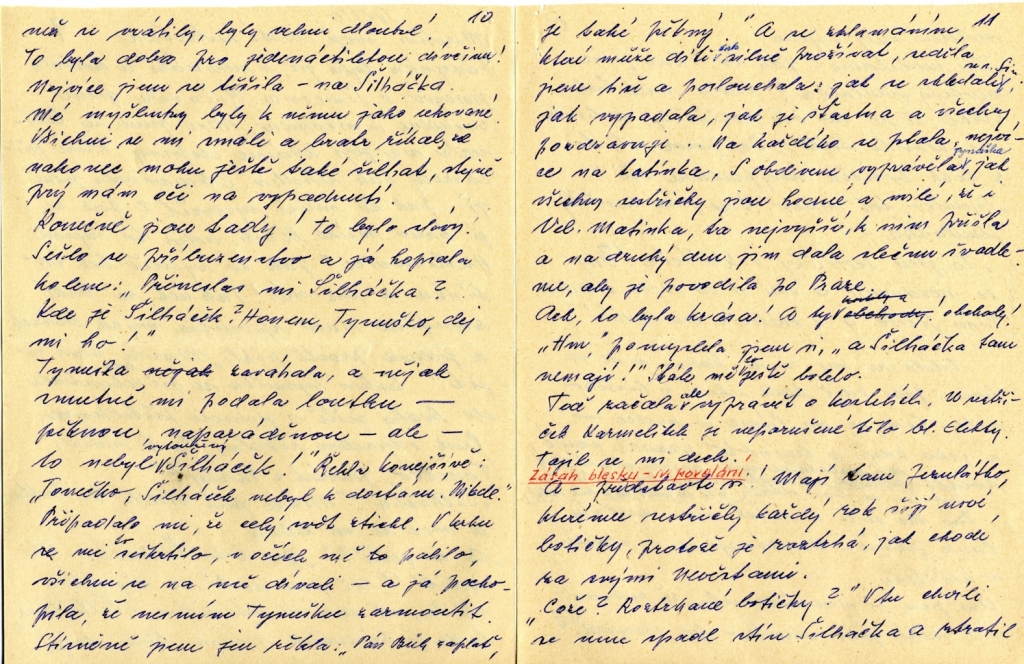 10
než se vrátily, byly velmi dlouhé!
To byla doba pro jedenáctiletou dívčinu!
Nejvíce jsem se těšila – na Šilháčka.
Mé myšlenky byly k němu jako ukované.
Všichni se mi smáli a bratr říkal, že
nakonec mohu ještě také šilhat, stejně
prý mám oči na vypadnutí.
Konečně jsou tady! To bylo slávy!
Sešlo se příbuzenstvo a já hopsala
kolem: „Přineslas mi Šilháčka?
Kde je Šilháček? Honem, Tynuško, dej
mi ho!"
Tynuška nějak zaváhala, a nějak
smutně mi podala loutku —
pěknou, naparáděnou – ale –
to nebyl vytoužený Šilháček!" Řekla konejšivě:
„Tonečko, Šilháček nebyl k dostání. Nikde."
Připadalo mi, že celý svět ztichl. V krku
se mi to seškrtilo, v očích mě to pálilo,
všichni se na mě dívali – a já pocho-
pila, že nesmím Tynušku zarmoutit.
Stísněně jsem jen řekla: „Pán Bůh zaplať,
11
je také pěkný." A se zklamáním,
které může dítě tak silně prožívat, seděla
jsem tiše a poslouchala: jak se shledaly,
jak vypadala, jak je šťastna a všechny
pozdravuje... Na každého se ptala, nejví-
ce na tatínka. S obdivem vyprávěla Tynuška, jak
všechny sestřičky jsou hodné a milé, že i
Vel. Matinka, ta nejvyšší, k nim přišla
a na druhý den jim dala slečnu švadle-
nu, aby je povodila po Praze.
Ach, to byla krása! A ty kostely a obchody! obchody!
„Hm," pomyslela jsem si, „a Šilháčka tam
nemají!" Stále mě to ještě bolelo.
Teď začala ale vyprávět o kostelích. U sestři-
ček Karmelitek je neporušené tělo bl. Elekty.
Tajil se mi dech.
Zásah blesku – sv. povolání
A – představte si! Mají tam Jezulátko,
kterému sestřičky každý rok šijí nové
botičky, protože je roztrhá, jak chodí
za svými Nevěstami.
"Cože? Roztrhané botičky?" V tu chvíli
se mne spadl stín Šilháčka a ztratil